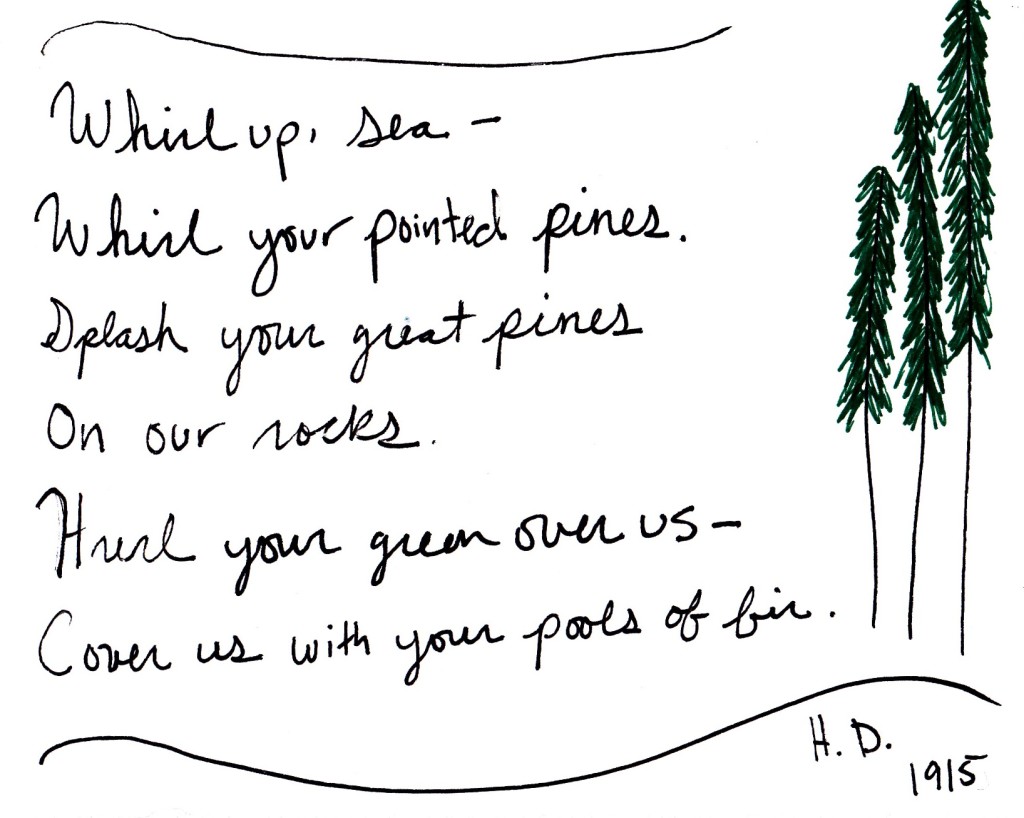 Whirl up, sea –
Whirl your pointed pines.
Splash your great pines
On our rocks.
Hurl your green over us –
Cover us with your pools of fir.
H. D.
1915